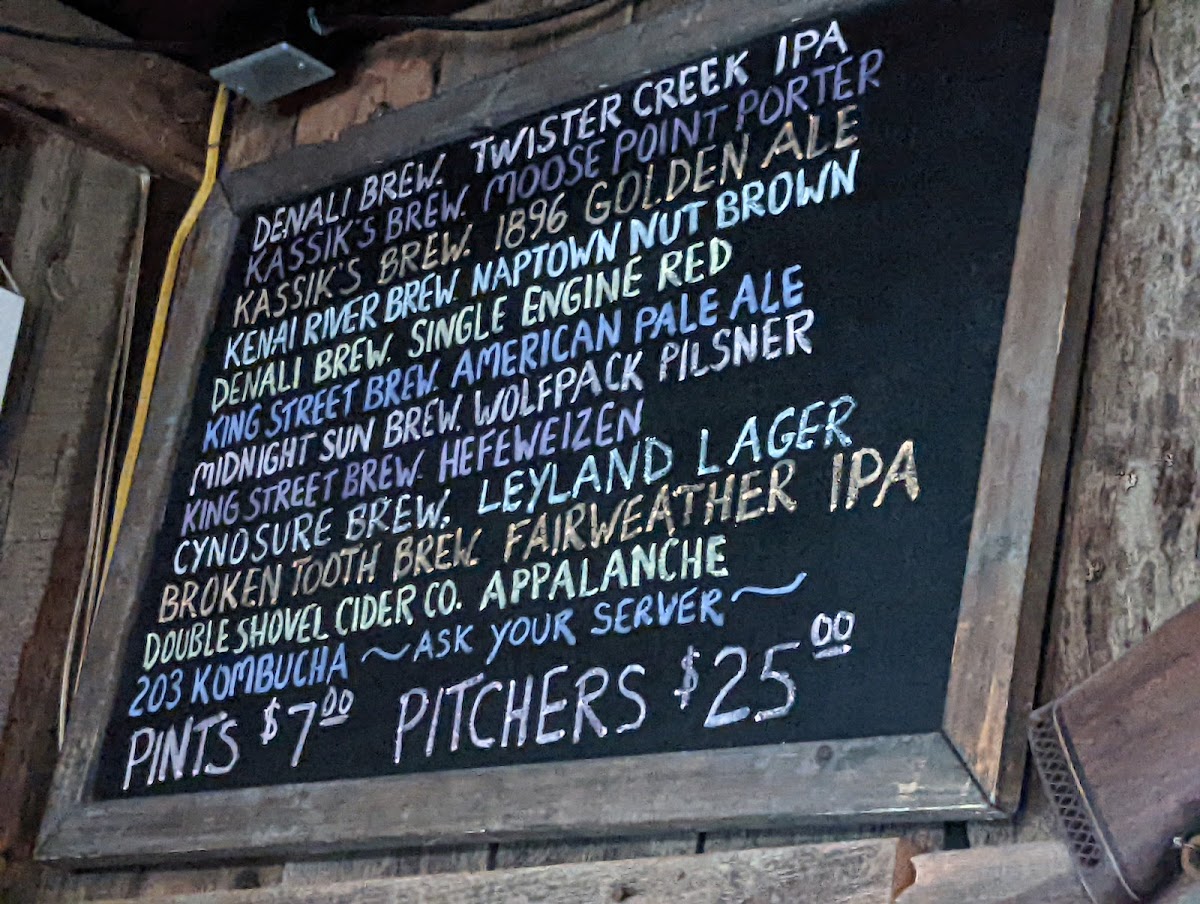 DENALI BREW. TWISTER CREEK IPA
KASSIK'S BREW. MOOSE POINT PORTER
KASSIK'S BREW. 1896 GOLDEN ALE
KENAI RIVER BREW. NAPTOWN NUT BROWN
DENALI BREW. SINGLE ENGINE RED
KING STREET BREW. AMERICAN PALE ALE
MIDNIGHT SUN BREW. WOLFPACK PILSNER
KING STREET BREW. HEFEWEIZEN
CYNOSURE BREW. LEYLAND LAGER
BROKEN TOOTH BREW. FAIRWEATHER IPA
DOUBLE SHOVEL CIDER CO. APPALANCHE
203 KOMBUCHA ~ASK YOUR SERVER~
PINTS $7.00 PITCHERS $25.00